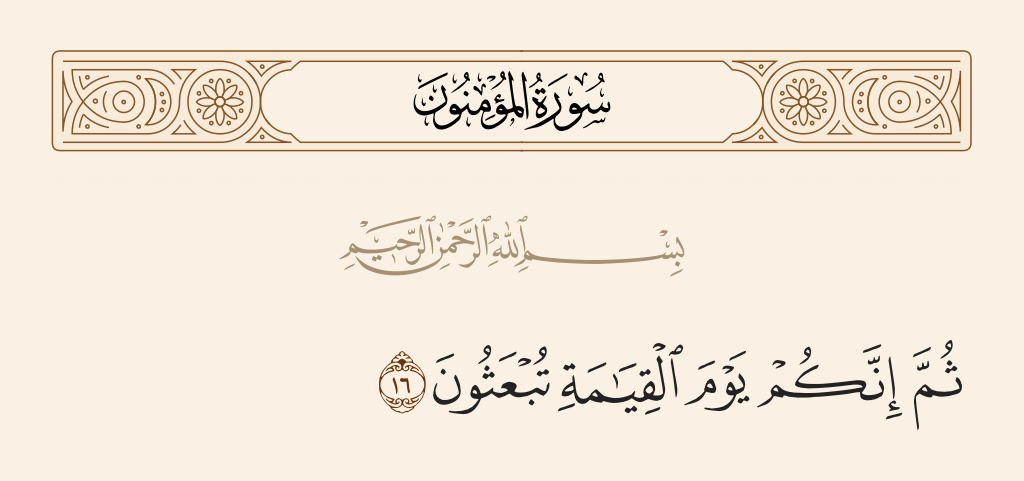 سُورَةُ المُؤْمِنُونَ
بِسْمِ ٱللَّهِ ٱلرَّحْمَٰنِ ٱلرَّحِيمِ
ثُمَّ إِنَّكُمْ يَوْمَ ٱلْقِيَٰمَةِ تُبْعَثُونَ ١٦